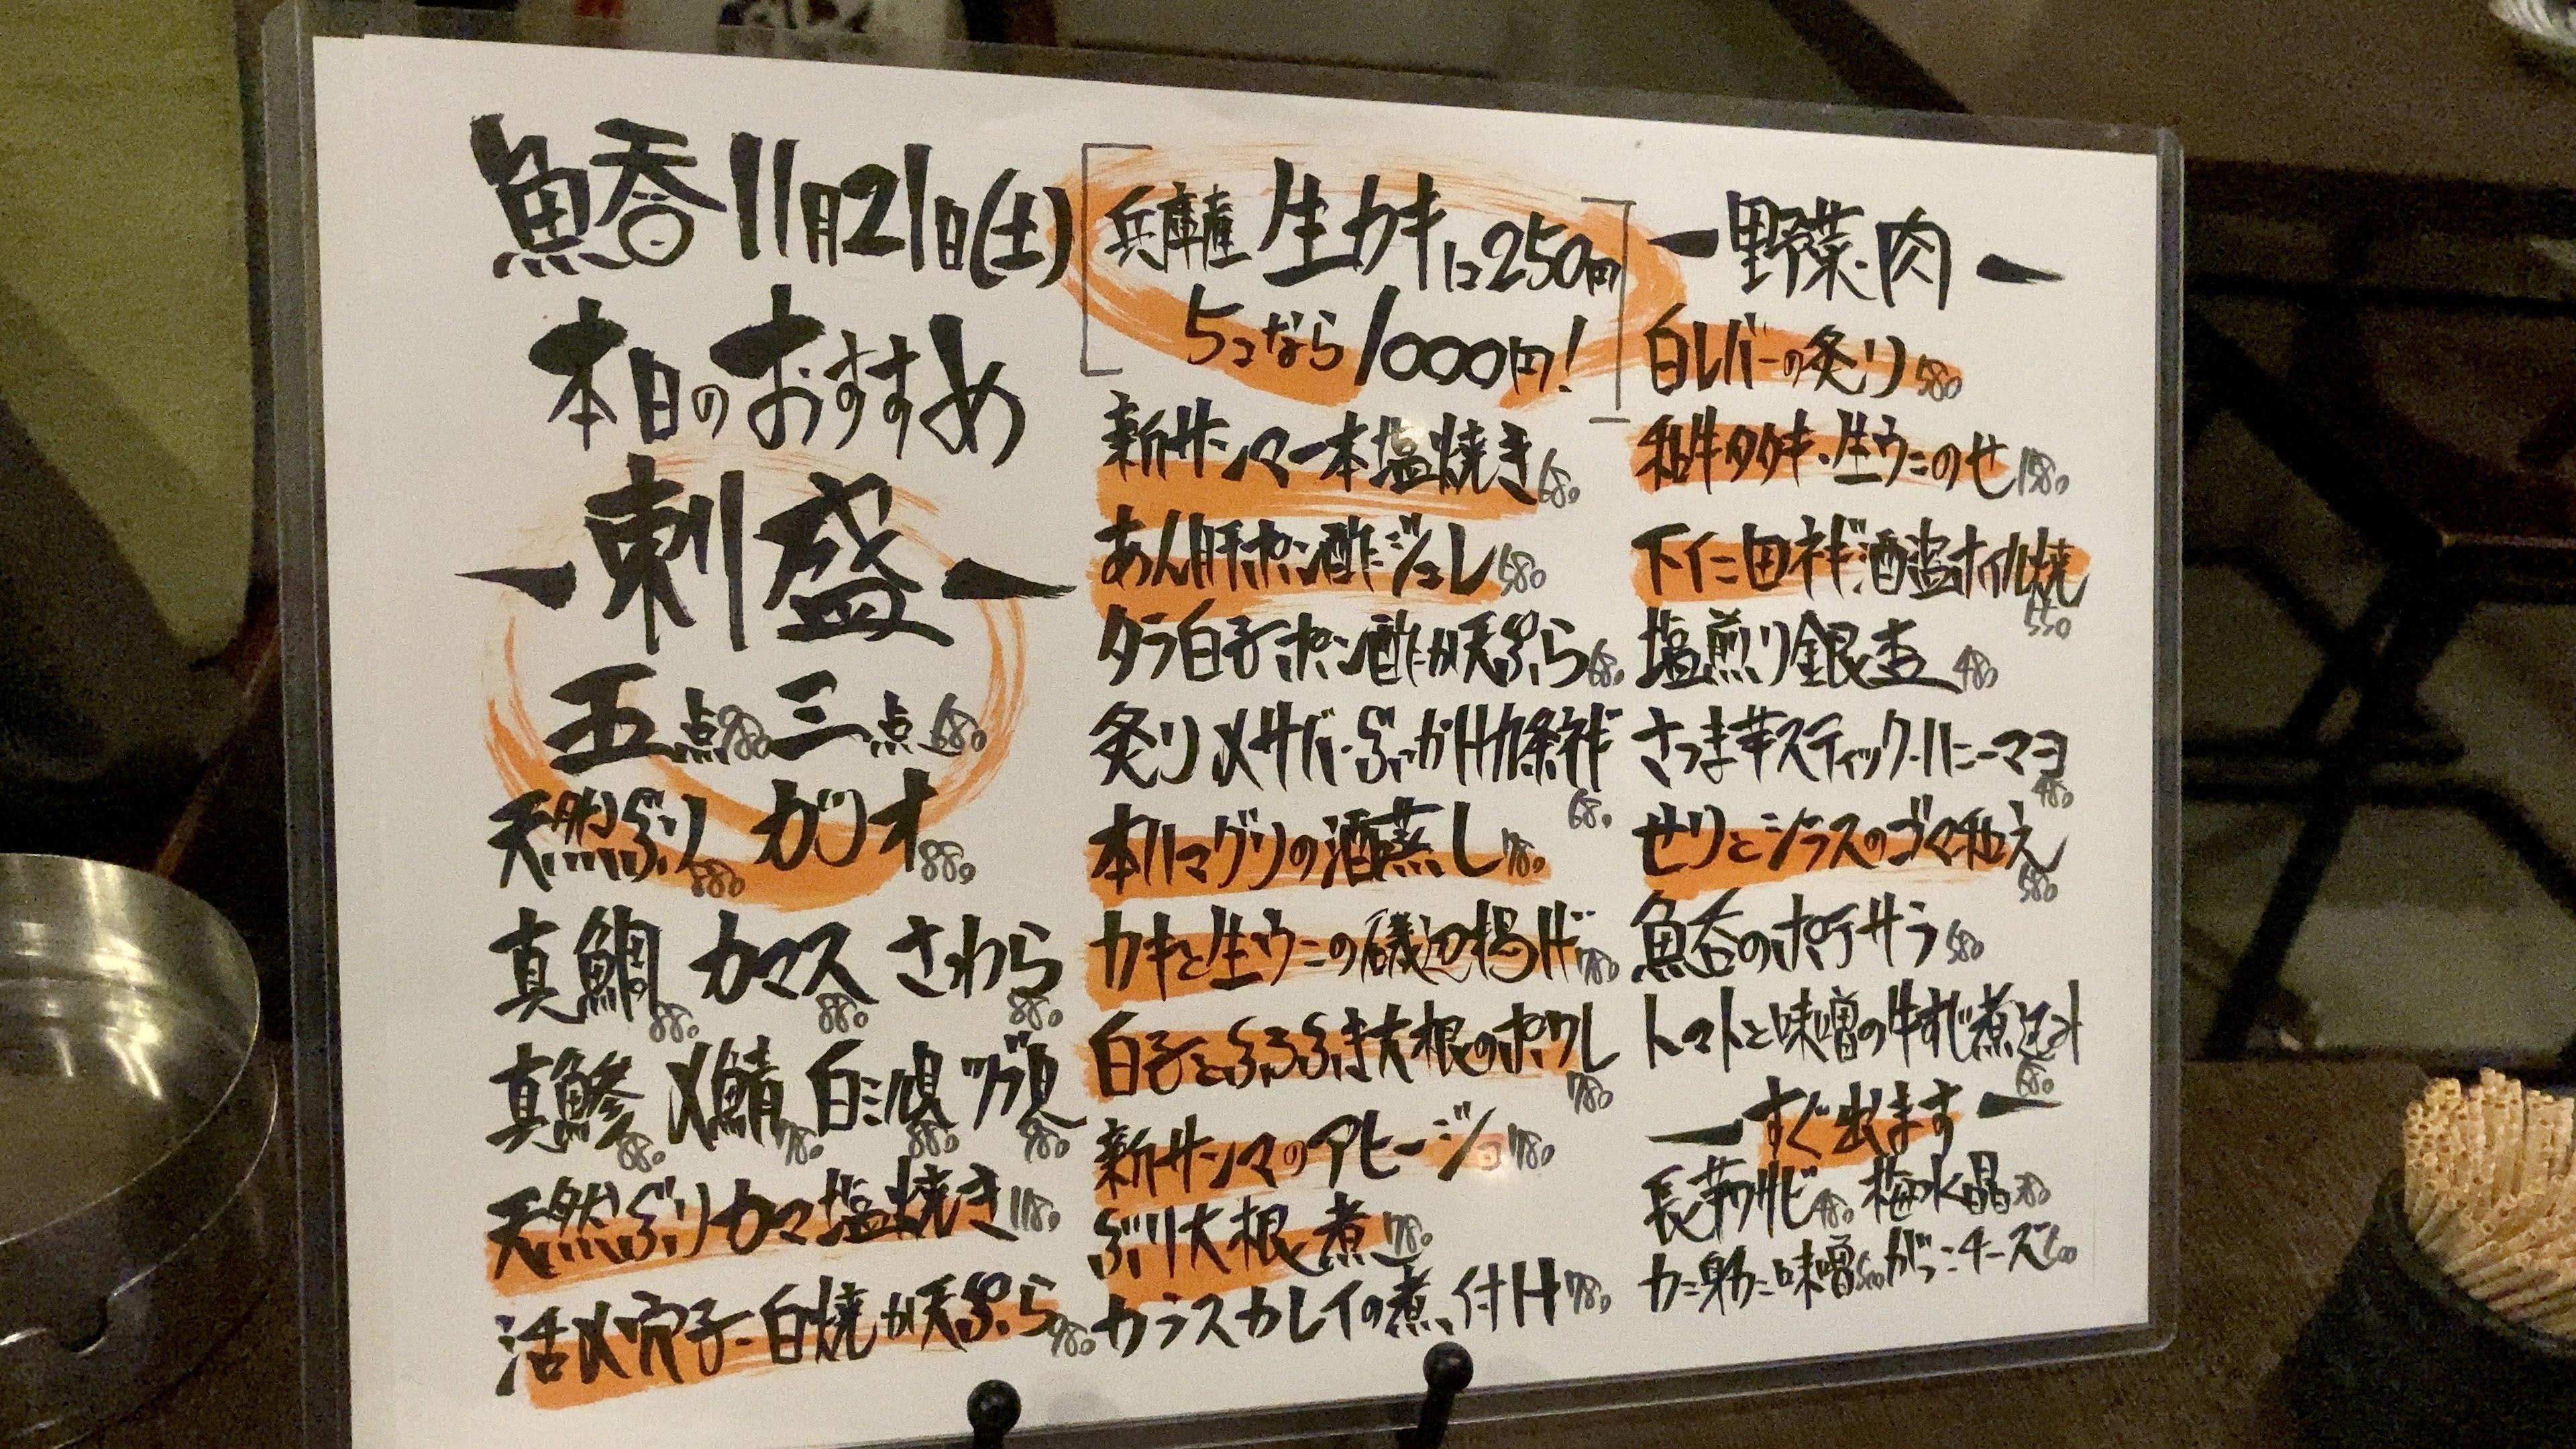 魚呑 11月21日(土)
本日のおすすめ
ー刺盛ー
五点980 三点680
天然ぶり880 ガツオ880
真鯛880 カマス880 さわら880
真鯵880 〆鯖780 白ミル貝880 ツブ貝980
天然ぶりカマ塩焼き1180
活〆穴子・白焼か天ぷら980
兵庫産 生カキ1コ250円
5コなら1000円!
新サンマ一本塩焼き680
あん肝ポン酢ジュレ580
タラ白子ポン酢か天ぷら680
炙り〆サバ・ぶっかけ九条ネギ
680
本ハマグリの酒蒸し780
カキと生ウニの磯辺揚げ780
白子とふろふき大根のポワレ
780
新サンマのアヒージョ780
ぶり大根煮780
カラスカレイの煮付け780
ー野菜・肉ー
白レバーの炙り580
和牛タタキ・生ウニのせ1580
下仁田ネギ酒盗ホイル焼
550
塩煎り銀杏480
さつま芋スティック・ハニーマヨ
480
せりとシラスのゴマ和え
580
魚呑のポテサラ580
トマトと味噌の牛すじ煮込み
680
ーすぐ出ますー
長芋ワサビ480 梅水晶
カニ身カニ味噌 がっこチーズ